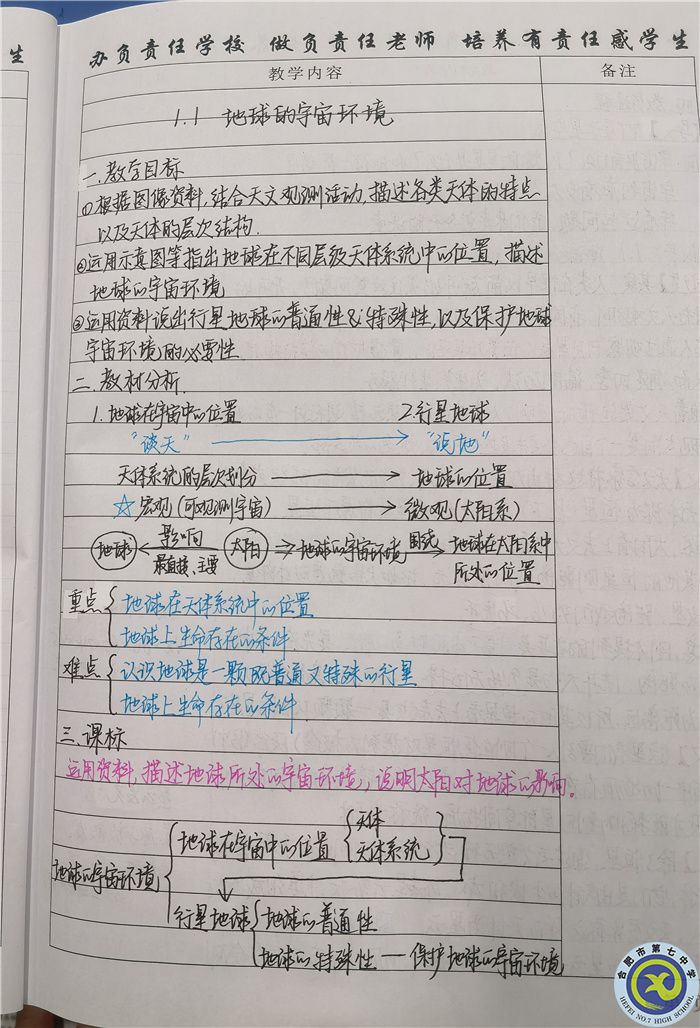 生
办负责任学校 做负责任老师 培养有责任感学生
教学内容 备注
1.1 地球的宇宙环境
一.教学目标
①根据图像资料,结合天文观测活动,描述各类天体的特点
以及天体的层次结构.
②运用示意图等指出地球在不同层级天体系统中的位置,描述
地球的宇宙环境
③运用资料说出行星地球的普通性&特殊性,以及保护地球
宇宙环境的必要性.
二.教材分析.
1.地球在宇宙中的位置 2.行星地球
“谈天” → “说地”
天体系统的层次划分 → 地球的位置
☆宏观(可观测宇宙) → 微观(太阳系)
地球 ← 影响 太阳 ⇒ 地球的宇宙环境 围绕 → 地球在太阳系中
最直接、主要 所处的位置
重点 { 地球在天体系统中的位置
地球上生命存在的条件
难点 { 认识地球是一颗既普通又特殊的行星
地球上生命存在的条件.
三.课标
运用资料,描述地球所处的宇宙环境,说明太阳对地球的影响。
地球在宇宙中的位置 { 天体
天体系统 }
地球的宇宙环境 {
行星地球 { 地球的普通性
地球的特殊性 — 保护地球的宇宙环境
合肥市第七中学
HEFEI NO.7 HIGH SCHOOL